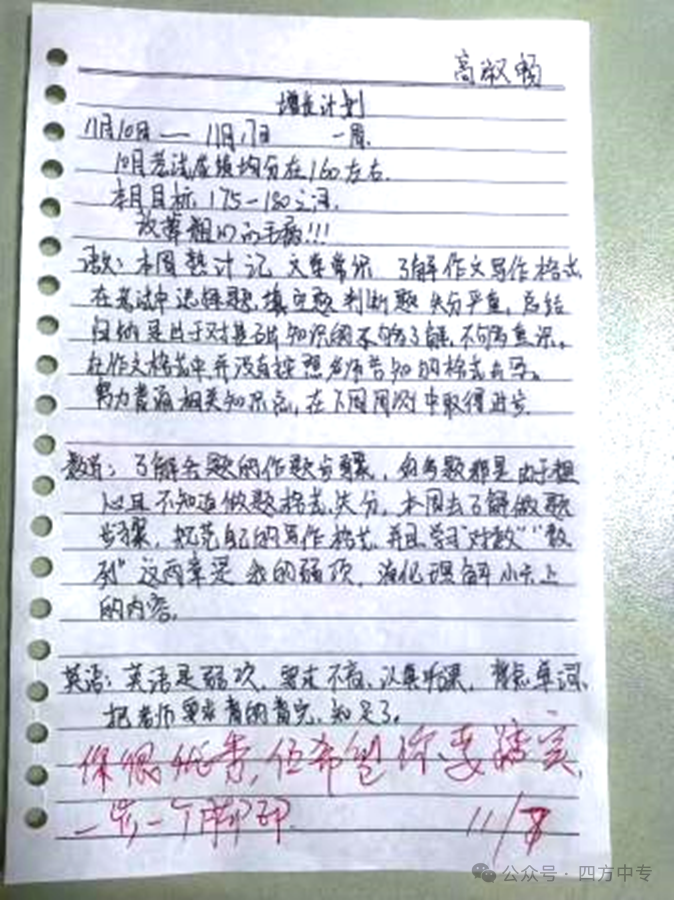 高淑畅
增长计划
11月10日 — 11月17日 一周.
10月考试成绩均分在160左右.
本月目标 175-180之间.
放弃粗心的毛病!!!
语文: 本周熟计记 文学常识 了解作文写作格式,
在考试中选择题,填空题 判断题 失分严重, 总结
归纳是出于对基础知识的不够了解,不够重视。
在作文格式中并没有按照老师告知的格式去写。
努力背诵相关知识点,在下周周测中取得进步
数学: 了解各题的作题步骤, 解答题都是由于粗
心且不知道做题格式,失分, 本周去了解做题
步骤, 规范自己的写作格式, 并且学习"对数""数
列"这两章是我的弱项, 消化理解小卡上
的内容.
英语: 英语是弱项, 要求不高,认真听课, 背忘单词,
把老师要求背的背完,知足了。
你很优秀,但希望你要踏实,
一步一个脚印. 11/8
公众号 · 四方中专